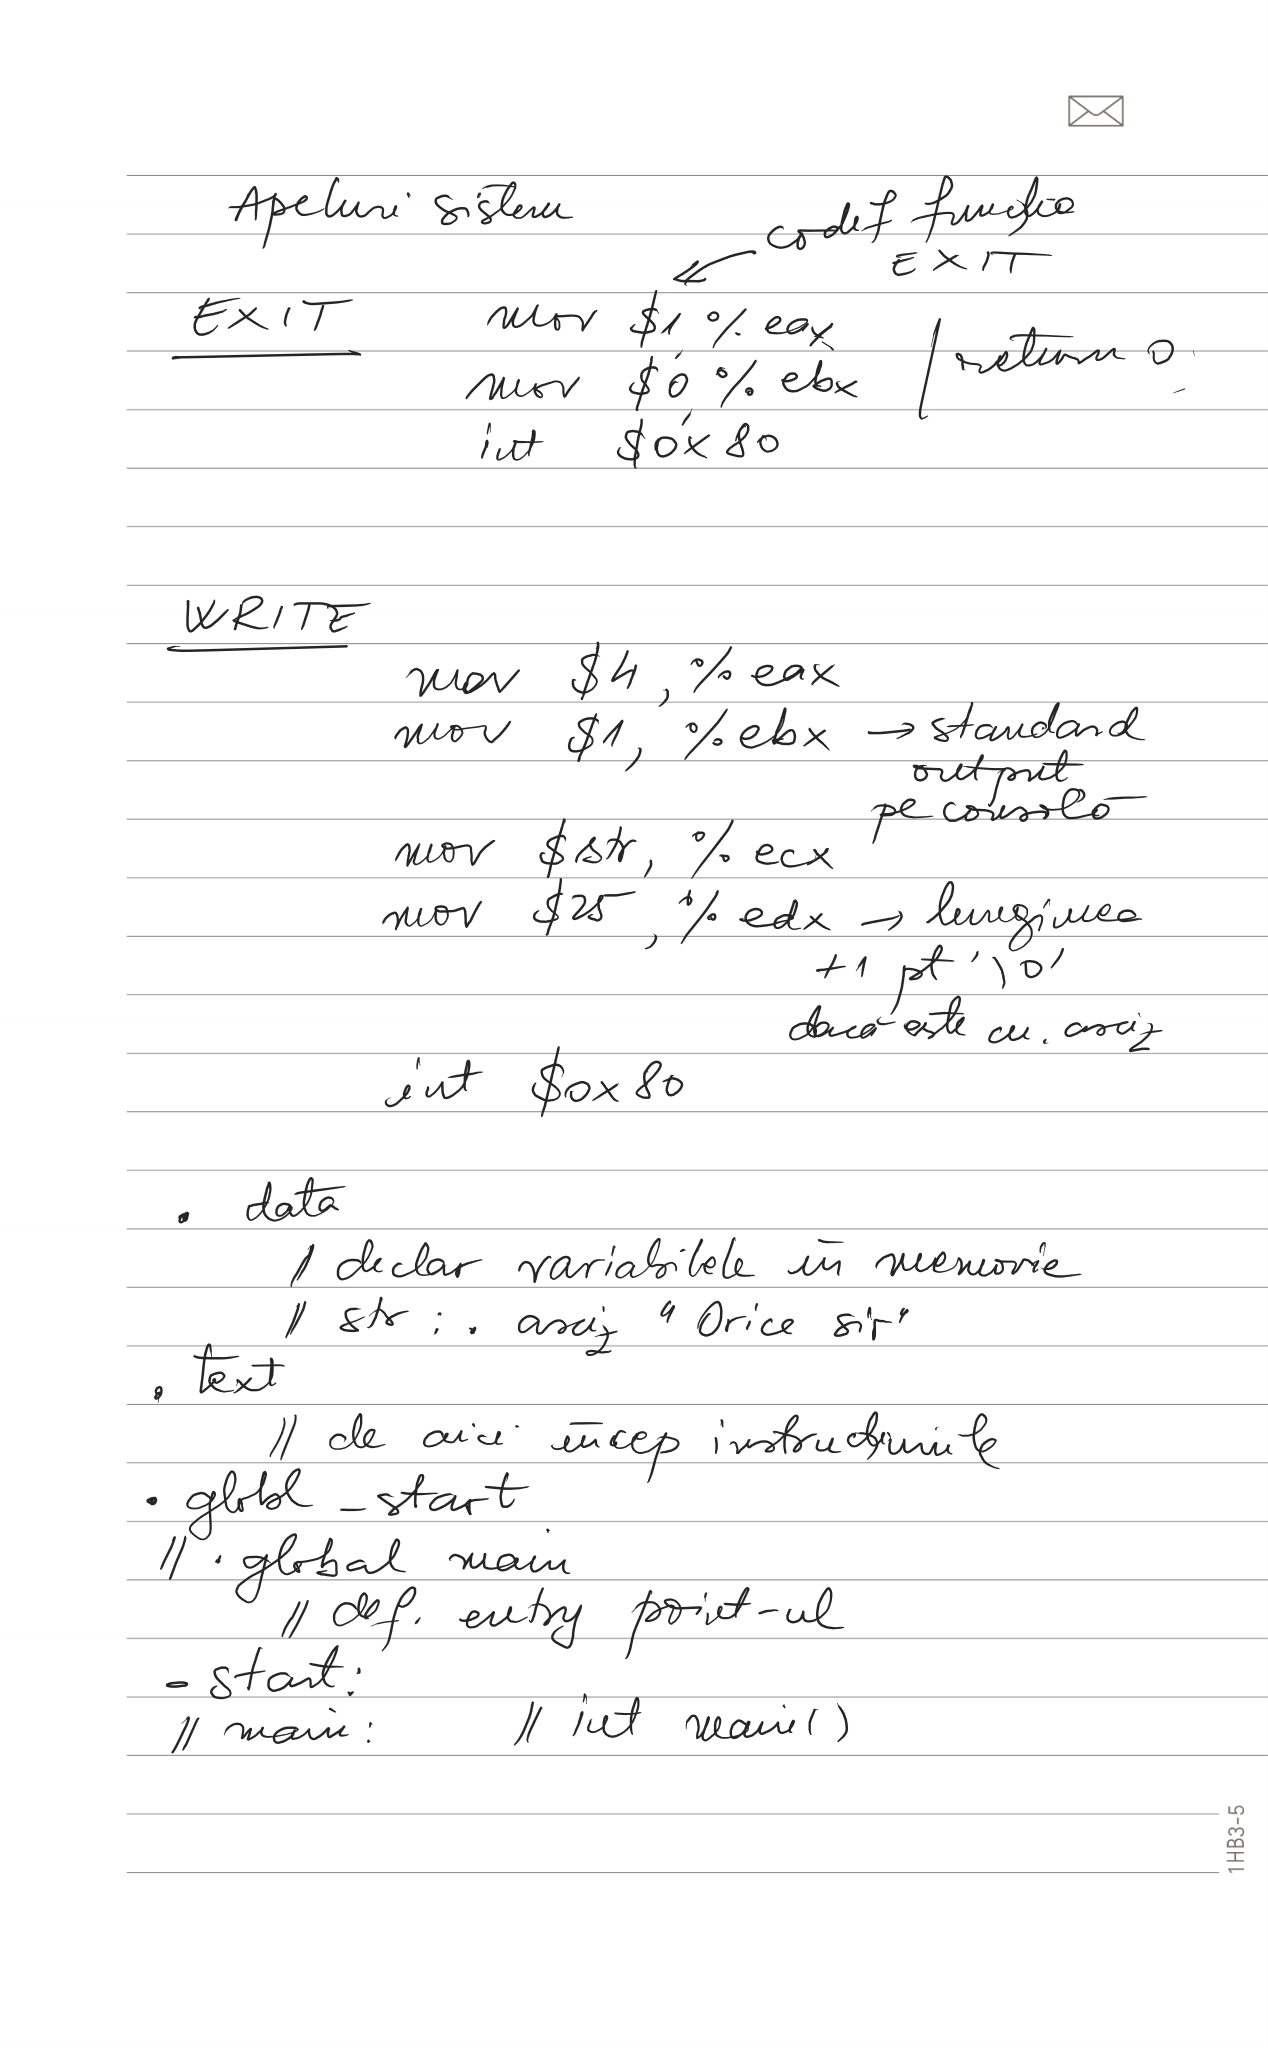 Apeluri sistem
codif funcția
EXIT
EXIT
mov $1, %eax
mov $0, %ebx
return 0;
int $0x80
WRITE
mov $4, %eax
mov $1, %ebx → standard
output
pe consolă
mov $str, %ecx
mov $25, %edx → lungimea
+1 pt '\0'
dacă este cu .asciz
int $0x80
.data
// declar variabilele în memorie
// str : .asciz "Orice sir"
.text
// de aici încep instrucțiunile
.globl _start
// .global main
// def. entry point-ul
_start:
// main: // int main()
1HB3-5